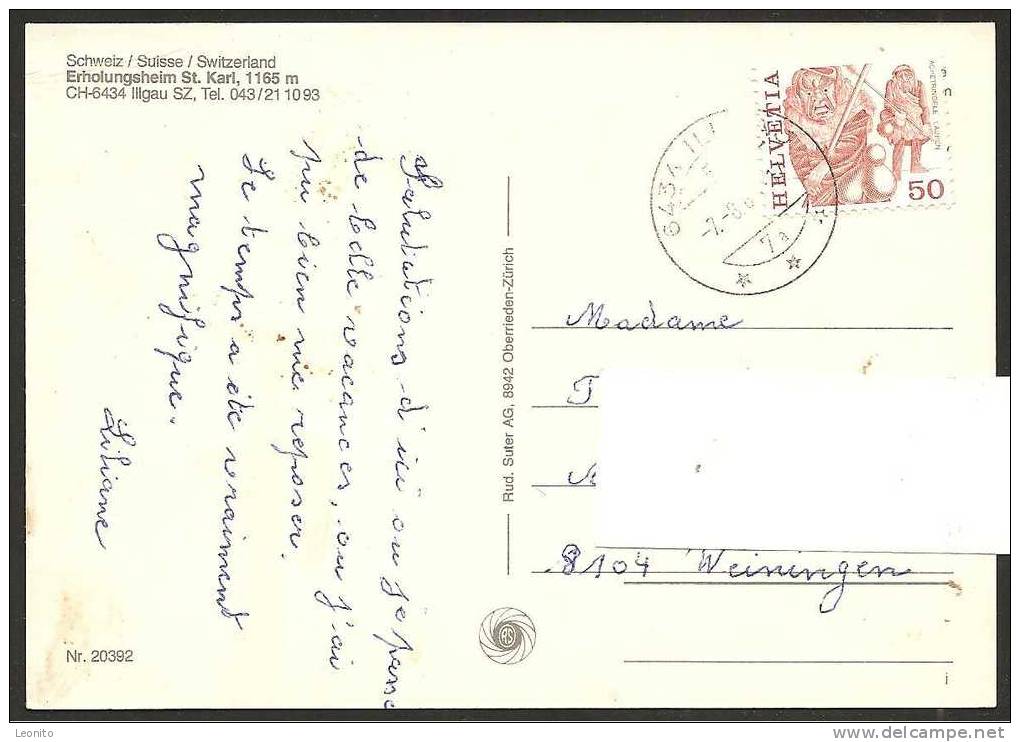 Schweiz / Suisse / Switzerland
Erholungsheim St. Karl, 1165 m
CH-6434 Illgau SZ, Tel. 043/21 10 93
Salutations d'ici ou je passe
de belle vacances, ou j'ai
pu bien me reposer.
Le temps a éte vraiment
magnifique.
Liliane
Nr. 20392
Rud. Suter AG, 8942 Oberrieden-Zürich
HELVETIA
ACHETRINGELE LAUPEN
50
6434
7a
Madame
T
8104 Weiningen
i
Leonito
www.delcampe.net